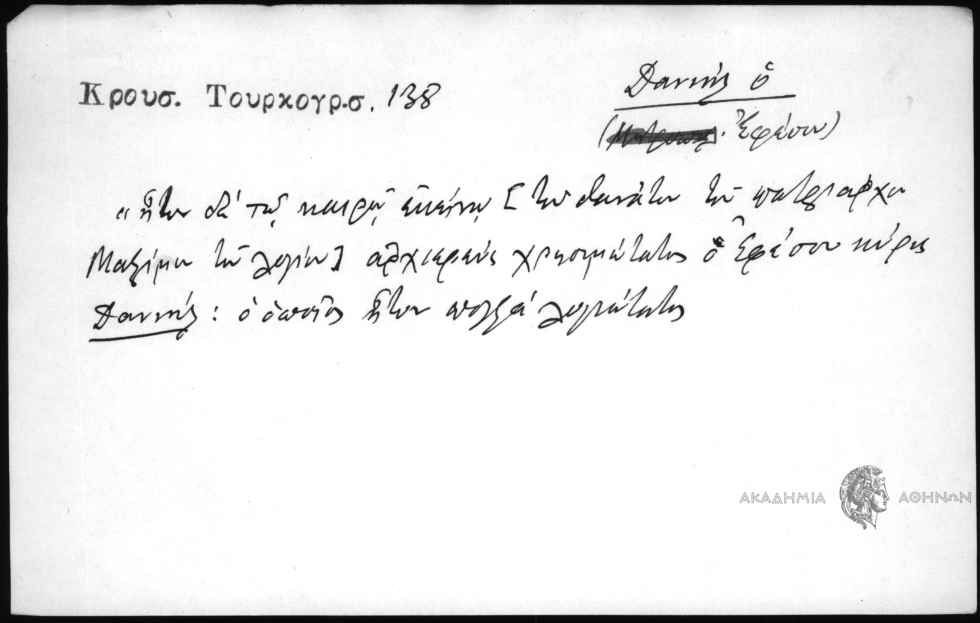 Κρουσ. Τουρκογρ.σ. 138
Δανιήλ ὁ
Ἐφέσου)
«ἦτον δὲ τῷ καιρῷ ἐκείνῳ [τοῦ θανάτου τοῦ πατριάρχου
Μαξίμου τοῦ λογίου] ἀρχιερεὺς χρησιμώτατος ὁ Ἐφέσου κύρις
Δανιήλ: ὁ ὁποῖος ἦτον πολλὰ λογιώτατος
ΑΚΑΔΗΜΙΑ ΑΘΗΝΩΝ